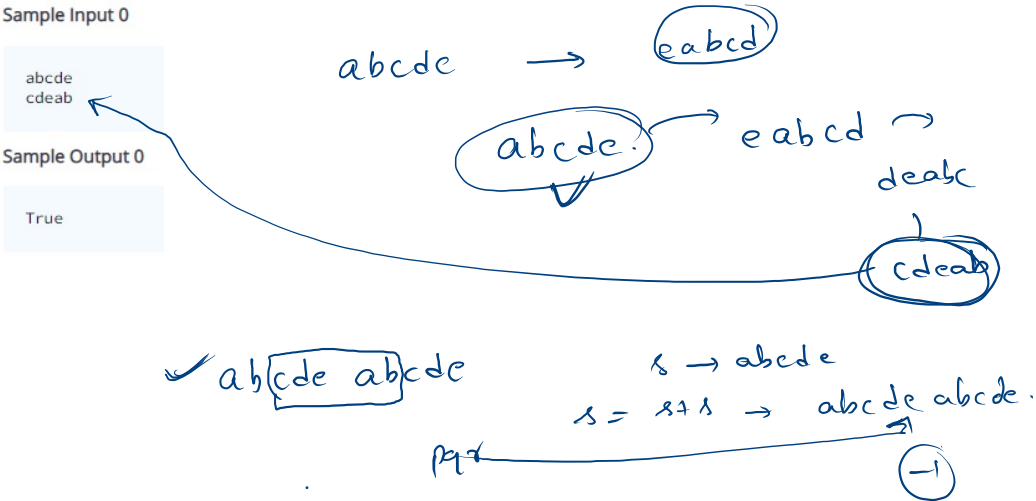 Sample Input 0
abcde
cdeab
Sample Output 0
True
abcde → eabcd
abcde. eabcd
deabc
cdeab
abcde abcde
s → abcde
s = s+s → abcde abcde.
pqr
-1